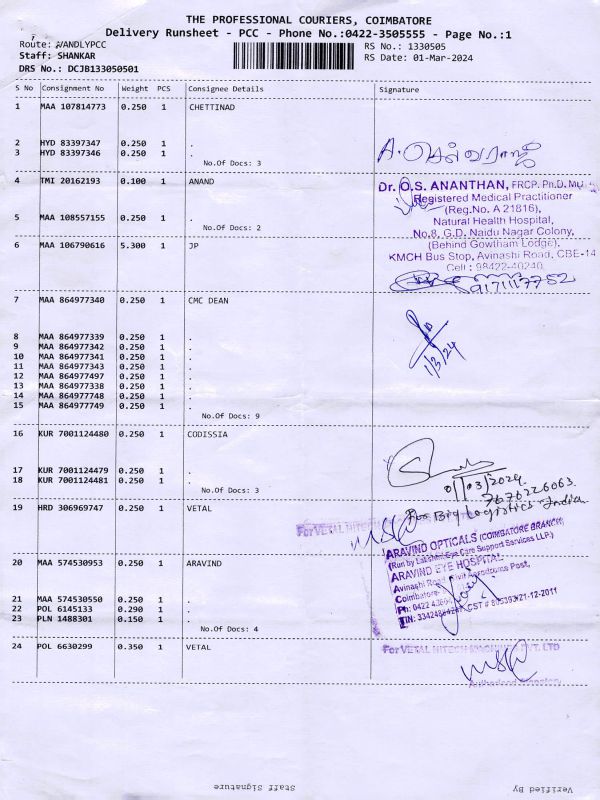 THE PROFESSIONAL COURIERS, COIMBATORE
Delivery Runsheet - PCC - Phone No.:0422-3505555 - Page No.:1
Route: VANDLYPCC
RS No.: 1330505
Staff: SHANKAR
RS Date: 01-Mar-2024
DRS No.: DCJB133050501
S No Consignment No Weight PCS Consignee Details Signature
1 MAA 107814773 0.250 1 CHETTINAD
2 HYD 83397347 0.250 1 .
3 HYD 83397346 0.250 1 .
A. செல்வராஜ்
No.Of Docs: 3
4 TMI 20162193 0.100 1 ANAND
Dr. O.S. ANANTHAN, FRCP. Ph.D. MD
Registered Medical Practitioner
(Reg.No. A 21816),
Natural Health Hospital,
5 MAA 108557155 0.250 1 .
No.Of Docs: 2
No.8, G.D. Naidu Nagar Colony,
(Behind Gowtham Lodge),
6 MAA 106790616 5.300 1 JP
KMCH Bus Stop, Avinashi Road, CBE-14
Cell : 98422-40240
9171117752
7 MAA 864977340 0.250 1 CMC DEAN
8 MAA 864977339 0.250 1 .
9 MAA 864977342 0.250 1 .
10 MAA 864977341 0.250 1 .
11 MAA 864977343 0.250 1 .
12 MAA 864977497 0.250 1 .
13 MAA 864977338 0.250 1 .
14 MAA 864977748 0.250 1 .
15 MAA 864977749 0.250 1 .
1/3/24
No.Of Docs: 9
16 KUR 7001124480 0.250 1 CODISSIA
17 KUR 7001124479 0.250 1 .
18 KUR 7001124481 0.250 1 .
01/03/2024
7676226063
No.Of Docs: 3
19 HRD 306969747 0.250 1 VETAL
For Big Logistics India
For VETAL HITECH
ARAVIND OPTICALS (COIMBATORE BRANCH)
(Run by Lakshmi Eye Care Support Services LLP.)
ARAVIND EYE HOSPITAL
20 MAA 574530953 0.250 1 ARAVIND
Avinashi Road, Civil Aerodrome Post,
Coimbatore-
Ph: 0422 4360
TIN: 33424864 CST # 21-12-2011
21 MAA 574530550 0.250 1 .
22 POL 6145133 0.290 1 .
23 PLN 1488301 0.150 1 .
No.Of Docs: 4
24 POL 6630299 0.350 1 VETAL
For VETAL HITECH MACHINES PVT. LTD
Authorised Signatory
Staff Signature
Verified By